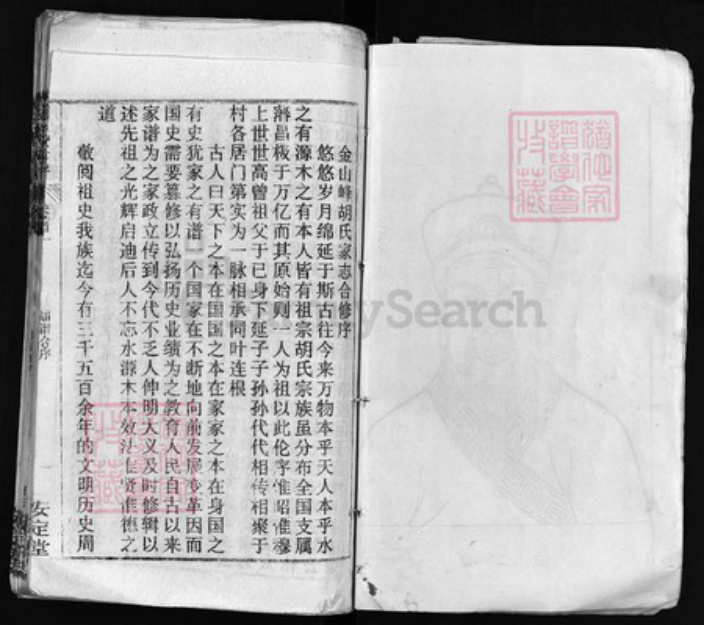 金山峰胡氏家志合修序
悠悠岁月绵延于斯古往今来万物本乎天人本乎水
之有源木之有本人皆有祖宗胡氏宗族虽分布全国支属
蕃昌极于万亿而其原始则一人为祖以此伦字惟昭惟穆
上世世高曾祖父于已身下延子子孙孙代代相传相聚于
村各居门第实为一脉相承同叶连根
古人曰天下之本在国国之本在家家之本在身国之
有史犹家之有谱一个国家在不断地向前发展变革因而
国史需要纂修以弘扬历史业绩为之教育人民自古以来
家谱为之家政立传到今代不乏人仲明大义及时修辑以
述先祖之光辉启迪后人不忘水源木本效法 贤惟德之
道
敬阅祖史我族迄今有三千五百余年的文明历史周
合序
一
安定堂
犹他家
谱学会
收藏
收藏
MySearch